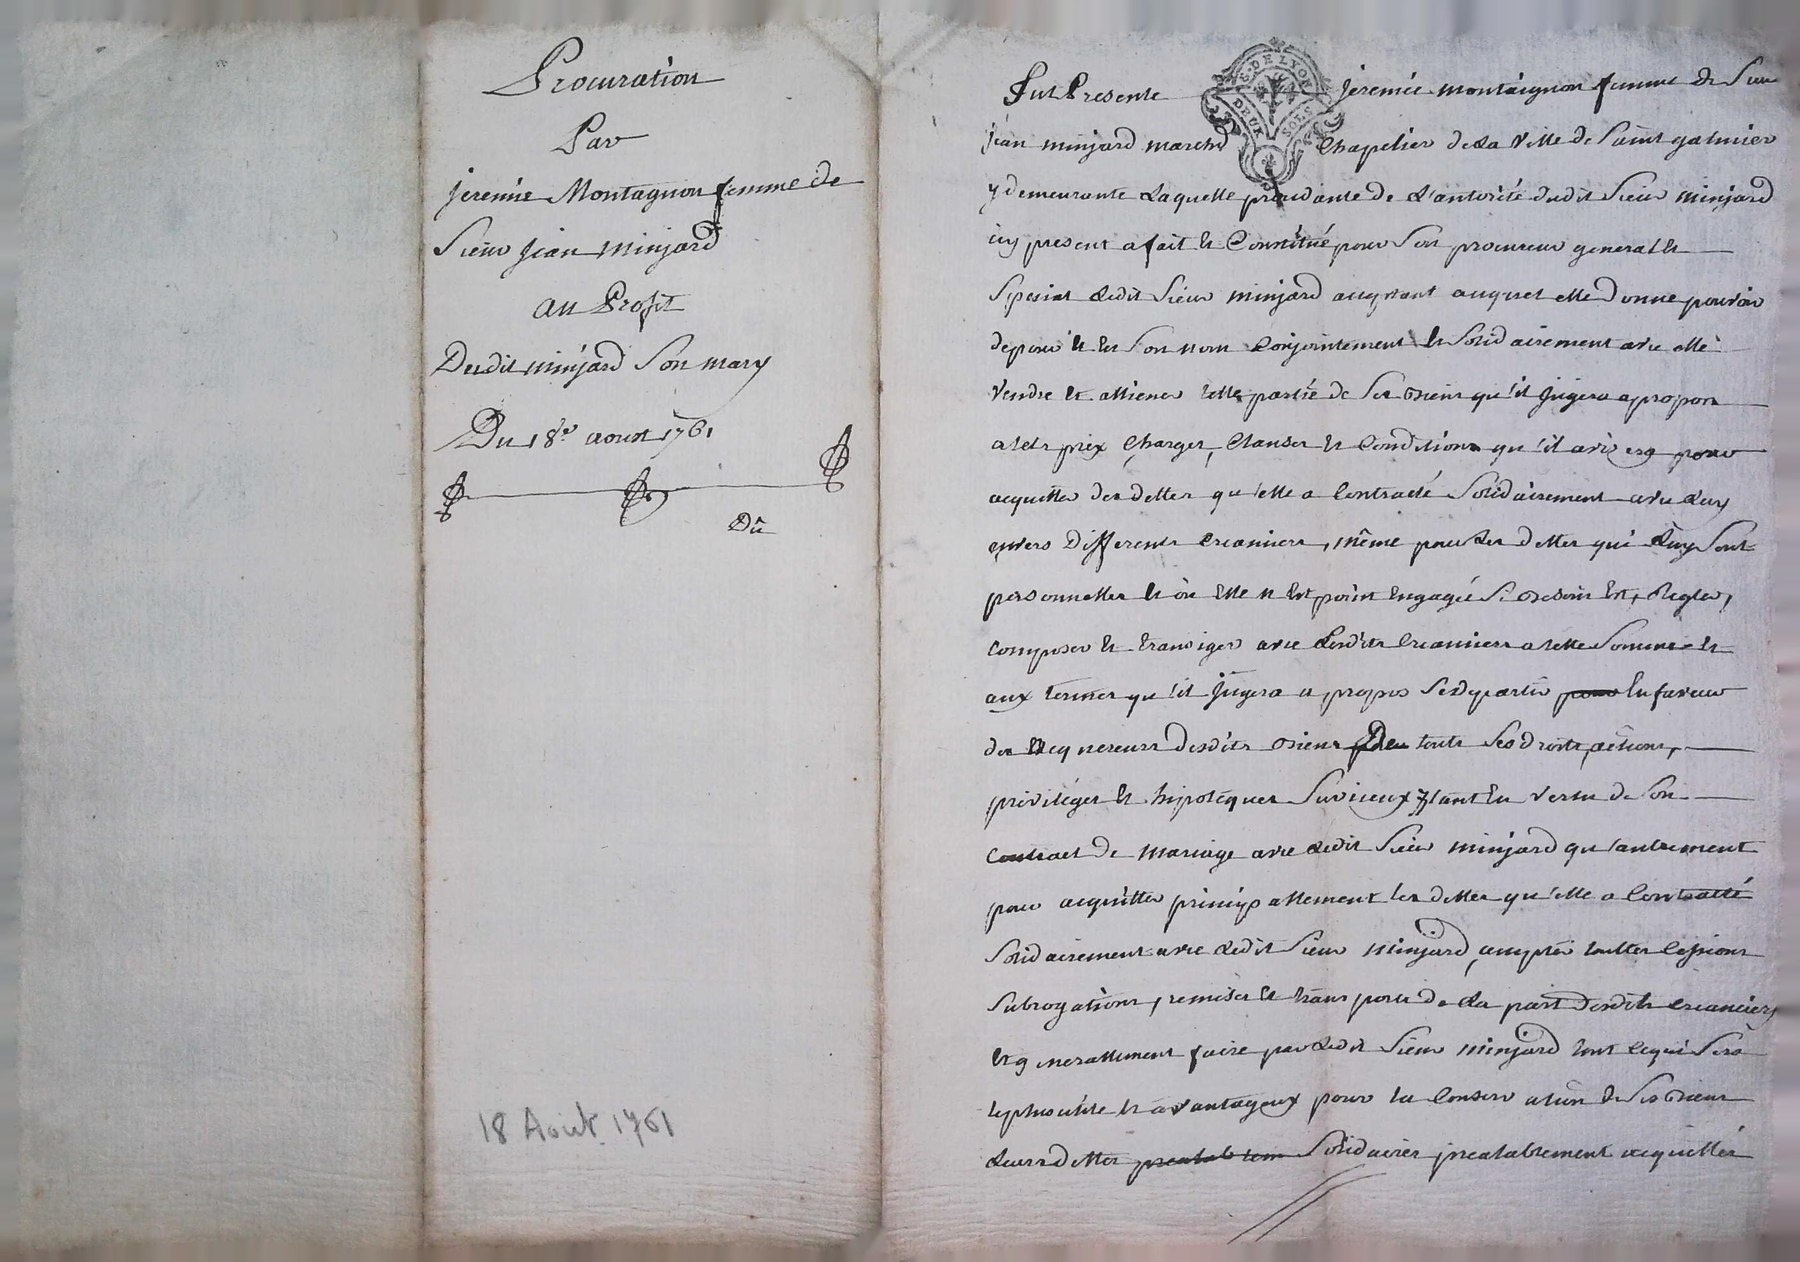 Procuration
Par
jeremie Montagnon femme de
Sieur jean minjard
au Profit
Dudit minjard Son mary
Du 18e aoust 1761
Dû
18 Août 1761
G. DE LYON
DEUX SOLS
Fut Presente jeremie montaignon femme de Sieur
jean minjard march̄d Chapelier de La Ville de Saint galmier
y demeurante Laquelle procedante de L'autorité dudit Sieur minjard
icy present a fait et Constitué pour Son procureur general et
Special Ledit Sieur minjard acceptant auquel elle Donne pouvoir
de pour et en Son nom Conjointement et Solidairement avec elle
Vendre et alliener telle partie de Ses biens qu'il jugera a propos
a tels prix Charges, Clauses et Conditions qu'il avisera pour
acquitter des dettes qu'elle a Contracté Solidairement avec Luy
envers Differents creanciers, même pour Les dettes qui Luy Sont
personnelles et où Elle n'Est point Engagée Si besoin Est, Regler,
Composer et transiger avec Lesdits Creanciers a telle Somme et
aux termes qu'il jugera a propos Se departir pour En faveur
des acquereurs desdits biens de touts Ses droits, actions,
privileges et hipoteques Sur iceux tant En vertu de Son
Contract de mariage avec Ledit Sieur minjard qu'autrement
pour acquitter principallement les dettes qu'elle a Contracté
Solidairement avec Ledit Sieur minjard, accepter touttes Cessions
Subrogations, remises et transports de La part desdits creanciers
Et generallement faire par Ledit Sieur minjard tout ce qui Sera
le plus utile et avantageux pour la Conservation de Ses biens
Leurs dettes prealablem Solidaires prealablement acquittés